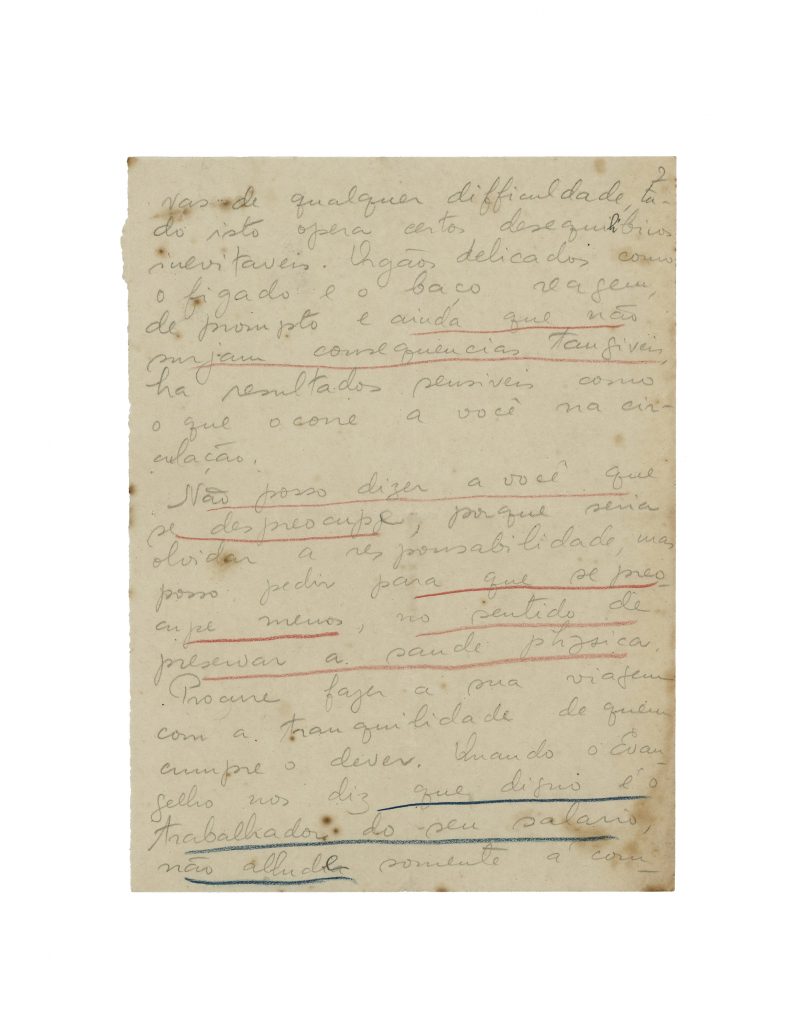 2
vas de qualquer difficuldade, tu-
do isto opera certos desequilibrios
inevitaveis. Orgãos delicados como
o figado e o baço reagem,
de prompto e ainda que não
surjam consequencias tangiveis,
ha resultados sensiveis como
o que ocorre a você na cir-
culação.
Não posso dizer a você que
se despreocupe, porque seria
olvidar a responsabilidade, mas
posso pedir para que se preo-
cupe menos, no sentido de
preservar a saude physica.
Procure fazer a sua viagem
com a tranquilidade de quem
cumpre o dever. Quando o Evan-
gelho nos diz que digno é o
trabalhador do seu salario,
não allude somente á com-